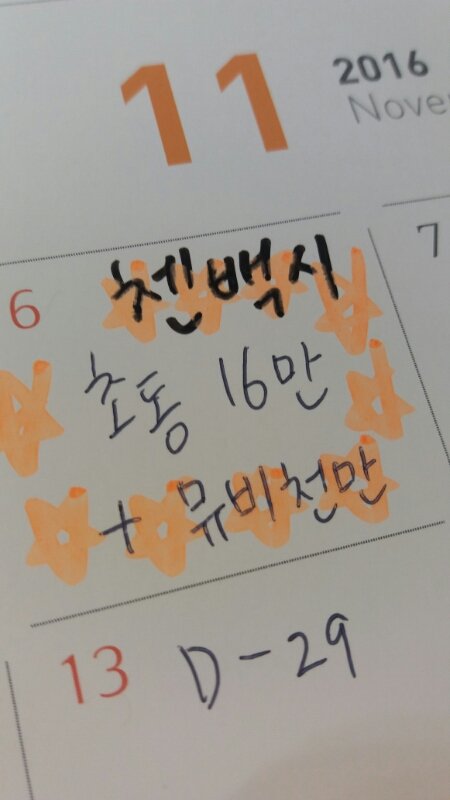 11 2016
Nove
6 첸백시 7
초동 16만
+ 뮤비천만
13 D-29